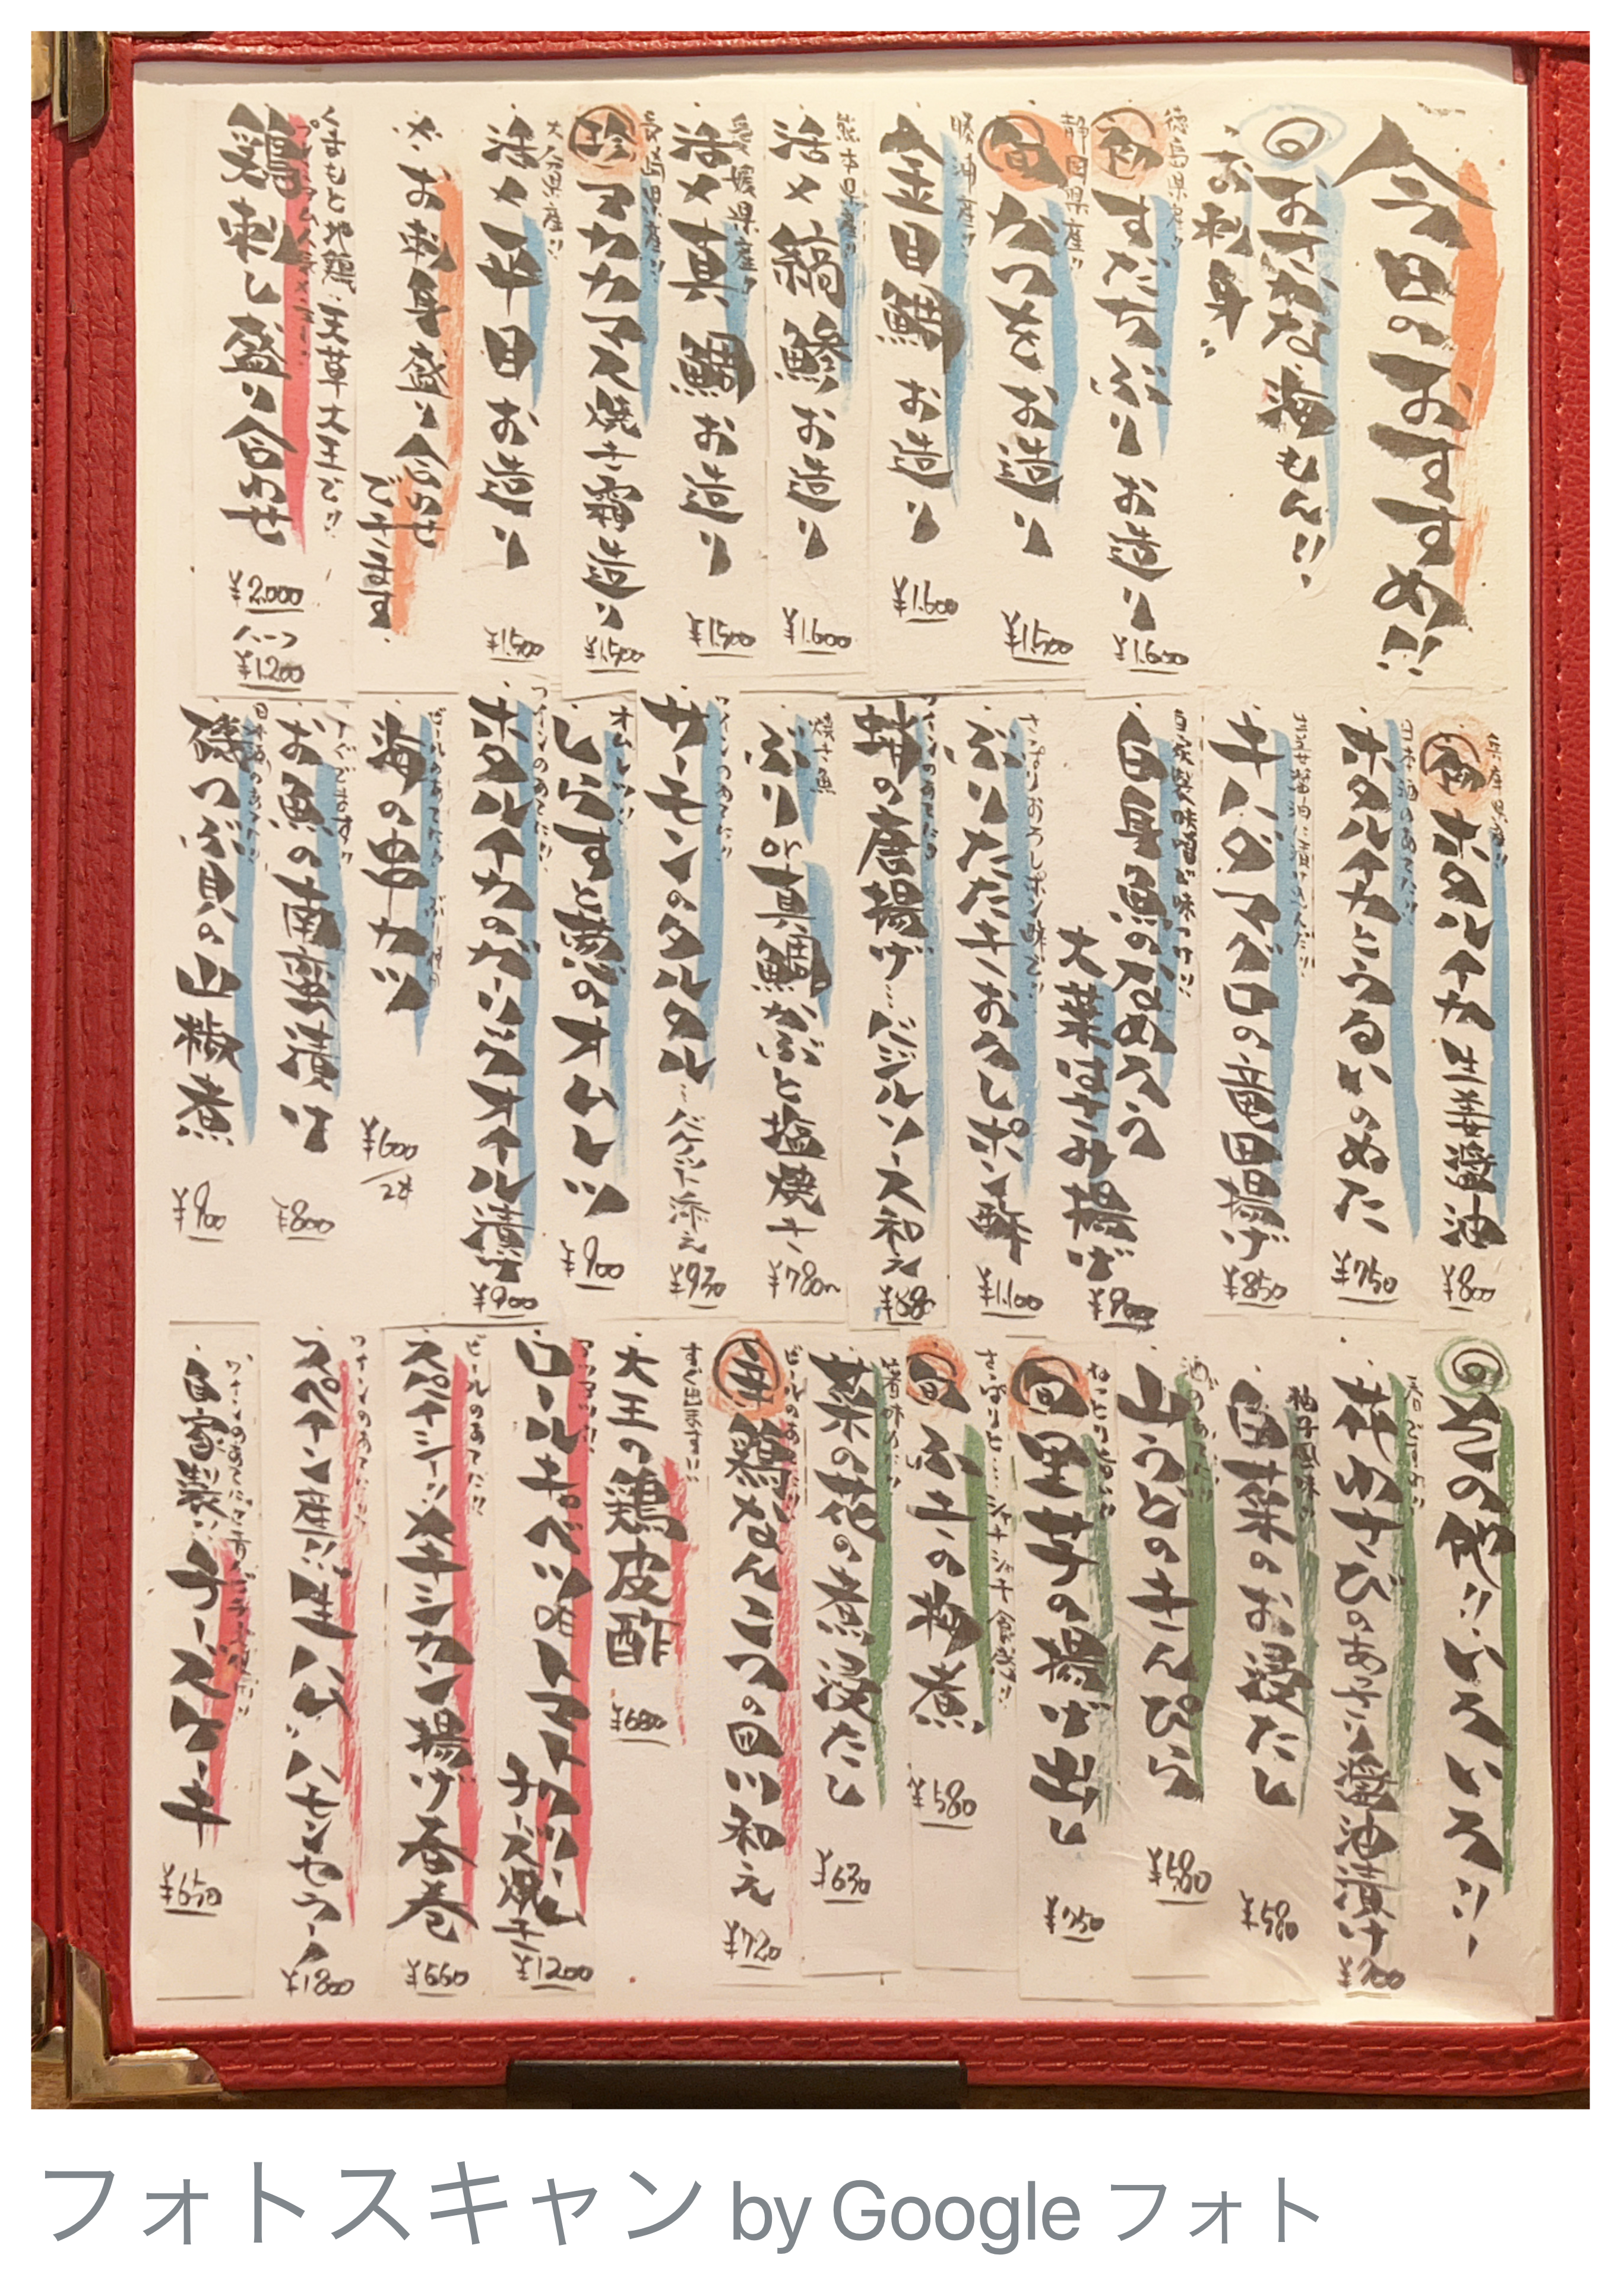 今日のおすすめ!!
おさかな、海もん!!
お刺身
徳島県産!!
初 すだちぶり お造り
¥1.600
静岡県産!!
旬 かつを お造り
¥1.500
勝浦産!!
金目鯛 お造り
¥1.600
熊本県産!!
活〆 縞鯵 お造り
¥1.600
愛媛県産!!
活〆 真鯛 お造り
¥1.500
長崎県産!!
珍 アカカマス 焼き霜造り
¥1.500
大分県産!!
活〆 平目 お造り
¥1.500
※お刺身盛り合わせ
できます
くまもと地鶏、天草大王で!!
鶏刺し盛り合わせ
¥2.000
ハーフ
¥1.200
兵庫県産!!
初 ホタルイカ生姜醤油
¥800
日本酒のあてに!!
ホタルイカとうるいのぬた
¥750
キハダマグロの竜田揚げ
¥850
自家製味噌で味つけ!!
白身魚のなめろう
大葉はさみ揚げ
¥900
さっぱりおろしポン酢で!!
ぶりたたき おろしポン酢
¥1.100
ワインのあてに!!
蛸の唐揚げ…バジルソース和え
¥880
焼き魚
ぶり or 真鯛かぶと塩焼き
¥780〜
ワインのあてに!!
サーモンのタルタル…バケット添え
¥930
オムレツ!!
しらすと葱のオムレツ
¥900
ワインのあてに!!
ホタルイカのガーリックオイル漬け
¥900
海の串カツ
¥600/2本
すぐでます!!
お魚の南蛮漬け
¥800
日本酒のあてに!!
磯つぶ貝の山椒煮
¥900
その他!!いろいろ!!
春ですよ!!
花わさびのあっさり醤油漬け
¥700
柚子風味
白菜のお浸たし
¥580
酒のあてに!!
山うどのきんぴら
¥580
旬 里芋の揚げ出し
¥750
旬 ふきの梅煮
¥580
春味め!!
菜の花の煮浸たし
¥630
ビールのあてに!!
鶏なんこつの四川和え
¥720
すぐ出ます!!
大王の鶏皮酢
¥680
アツアツ!!
ロールキャベツのトマトクリーム
チーズ焼き
¥1200
ビールのあてに!!
スパイシー!!メキシカン揚げ春巻
¥660
ワインのあてに!!
スペイン産!!生ハム、ハモンセラーノ
¥1800
自家製!!チーズケーキ
¥650
フォトスキャン by Google フォト